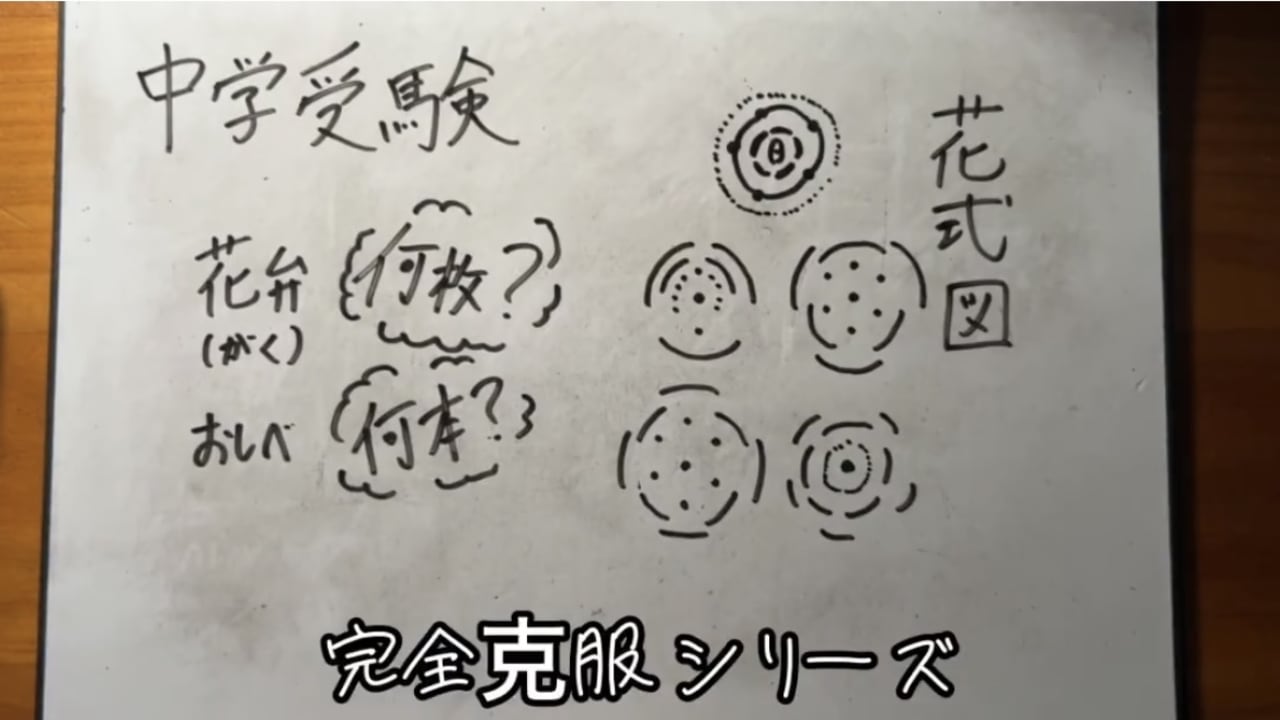 中学受験
花式図
花弁 何枚?
(がく)
おしべ 何本?
完全克服シリーズ